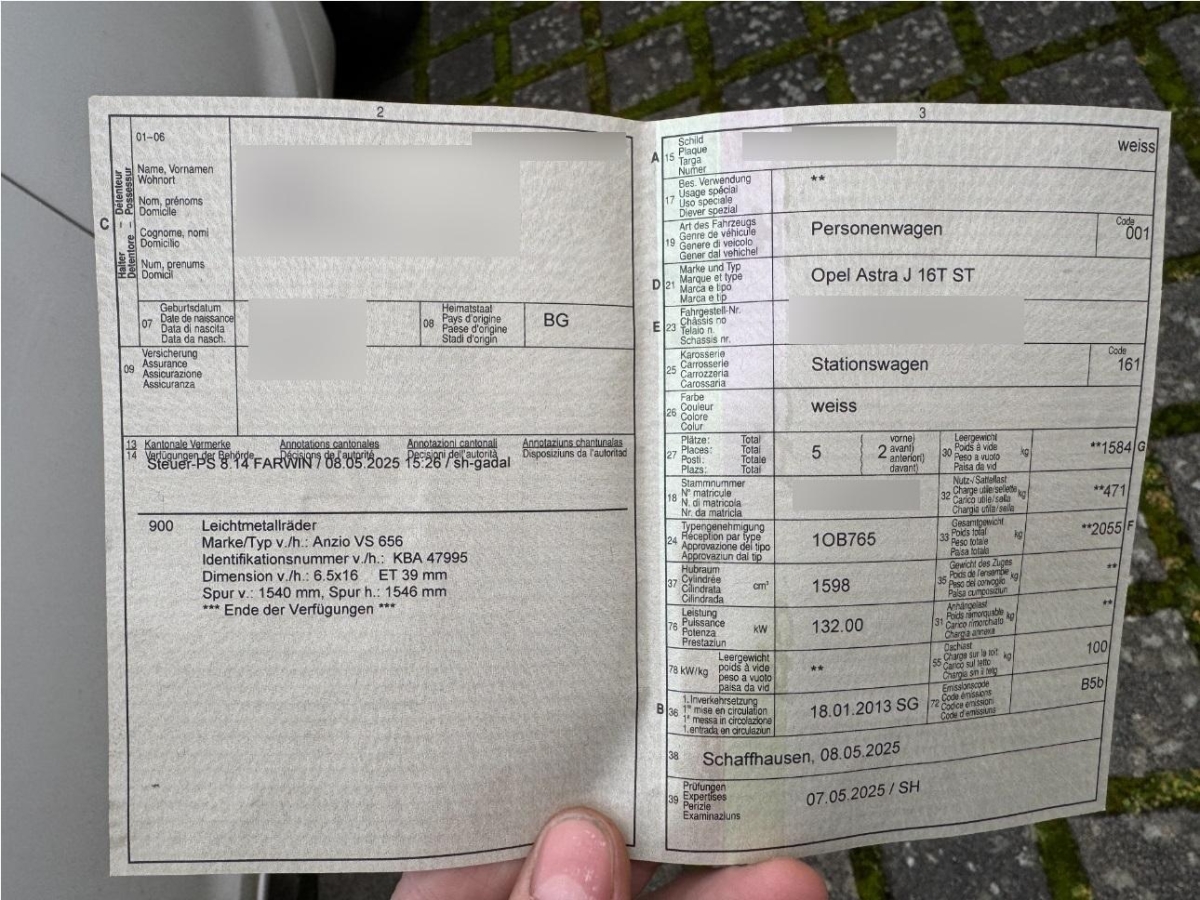 2
01-06
C
Halter – Détenteur
Detentore – Possessur
Name, Vornamen
Wohnort
Nom, prénoms
Domicile
Cognome, nomi
Domicilio
Num, prenums
Domicil
07
Geburtsdatum
Date de naissance
Data di nascita
Data da nasch.
08
Heimatstaat
Pays d'origine
Paese d'origine
Stadi d'origin
BG
09
Versicherung
Assurance
Assicurazione
Assicuranza
13 Kantonale Vermerke Annotations cantonales Annotazioni cantonali Annotaziuns chantunalas
14 Verfügungen der Behörde Décisions de l'autorité Decisioni dell'autorità Disposiziuns da l'autoritad
Steuer-PS 8.14 FARWIN / 08.05.2025 15:26 / sh-gadal
900 Leichtmetallräder
Marke/Typ v./h.: Anzio VS 656
Identifikationsnummer v./h.: KBA 47995
Dimension v./h.: 6.5x16 ET 39 mm
Spur v.: 1540 mm, Spur h.: 1546 mm
*** Ende der Verfügungen ***
3
A 15
Schild
Plaque
Targa
Numer
weiss
17
Bes. Verwendung
Usage spécial
Uso speciale
Diever spezial
**
19
Art des Fahrzeugs
Genre de véhicule
Genere di veicolo
Gener dal vehichel
Personenwagen
Code
001
D 21
Marke und Typ
Marque et type
Marca e tipo
Marca e tip
Opel Astra J 16T ST
E 23
Fahrgestell-Nr.
Châssis no
Telaio n.
Schassis nr.
25
Karosserie
Carrosserie
Carrozzeria
Carossaria
Stationswagen
Code
161
26
Farbe
Couleur
Colore
Colur
weiss
27
Plätze: Total
Places: Total
Posti: Totale
Plazs: Total
5
2
vorne)
avant)
anteriori)
davant)
30
Leergewicht
Poids à vide
Peso a vuoto
Paisa da vid
kg
**1584 G
18
Stammnummer
N° matricule
N. di matricola
Nr. da matricla
32
Nutz-/Sattellast
Charge utile/sellette
Carico utile/sella
Chargia utila/sella
kg
**471
24
Typengenehmigung
Réception par type
Approvazione del tipo
Approvaziun dal tip
1OB765
33
Gesamtgewicht
Poids total
Peso totale
Paisa totala
kg
**2055 F
37
Hubraum
Cylindrée
Cilindrata
Cilindrada
cm³
1598
35
Gewicht des Zuges
Poids de l'ensemble
Peso del convoglio
Paisa cumposiziun
kg
**
76
Leistung
Puissance
Potenza
Prestaziun
kW
132.00
31
Anhängelast
Poids remorquable
Carico rimorchiato
Chargia annexa
kg
**
78 kW/kg
Leergewicht
poids à vide
peso a vuoto
paisa da vid
**
55
Dachlast
Charge sur le toit
Carico sul tetto
Chargia sin il tetg
kg
100
B 36
1.Inverkehrsetzung
1re mise en circulation
1a messa in circolazione
1.entrada en circulaziun
18.01.2013 SG
72
Emissionscode
Code émissions
Codice emissioni
Code d'emissiuns
B5b
38
Schaffhausen, 08.05.2025
39
Prüfungen
Expertises
Perizie
Examinaziuns
07.05.2025 / SH